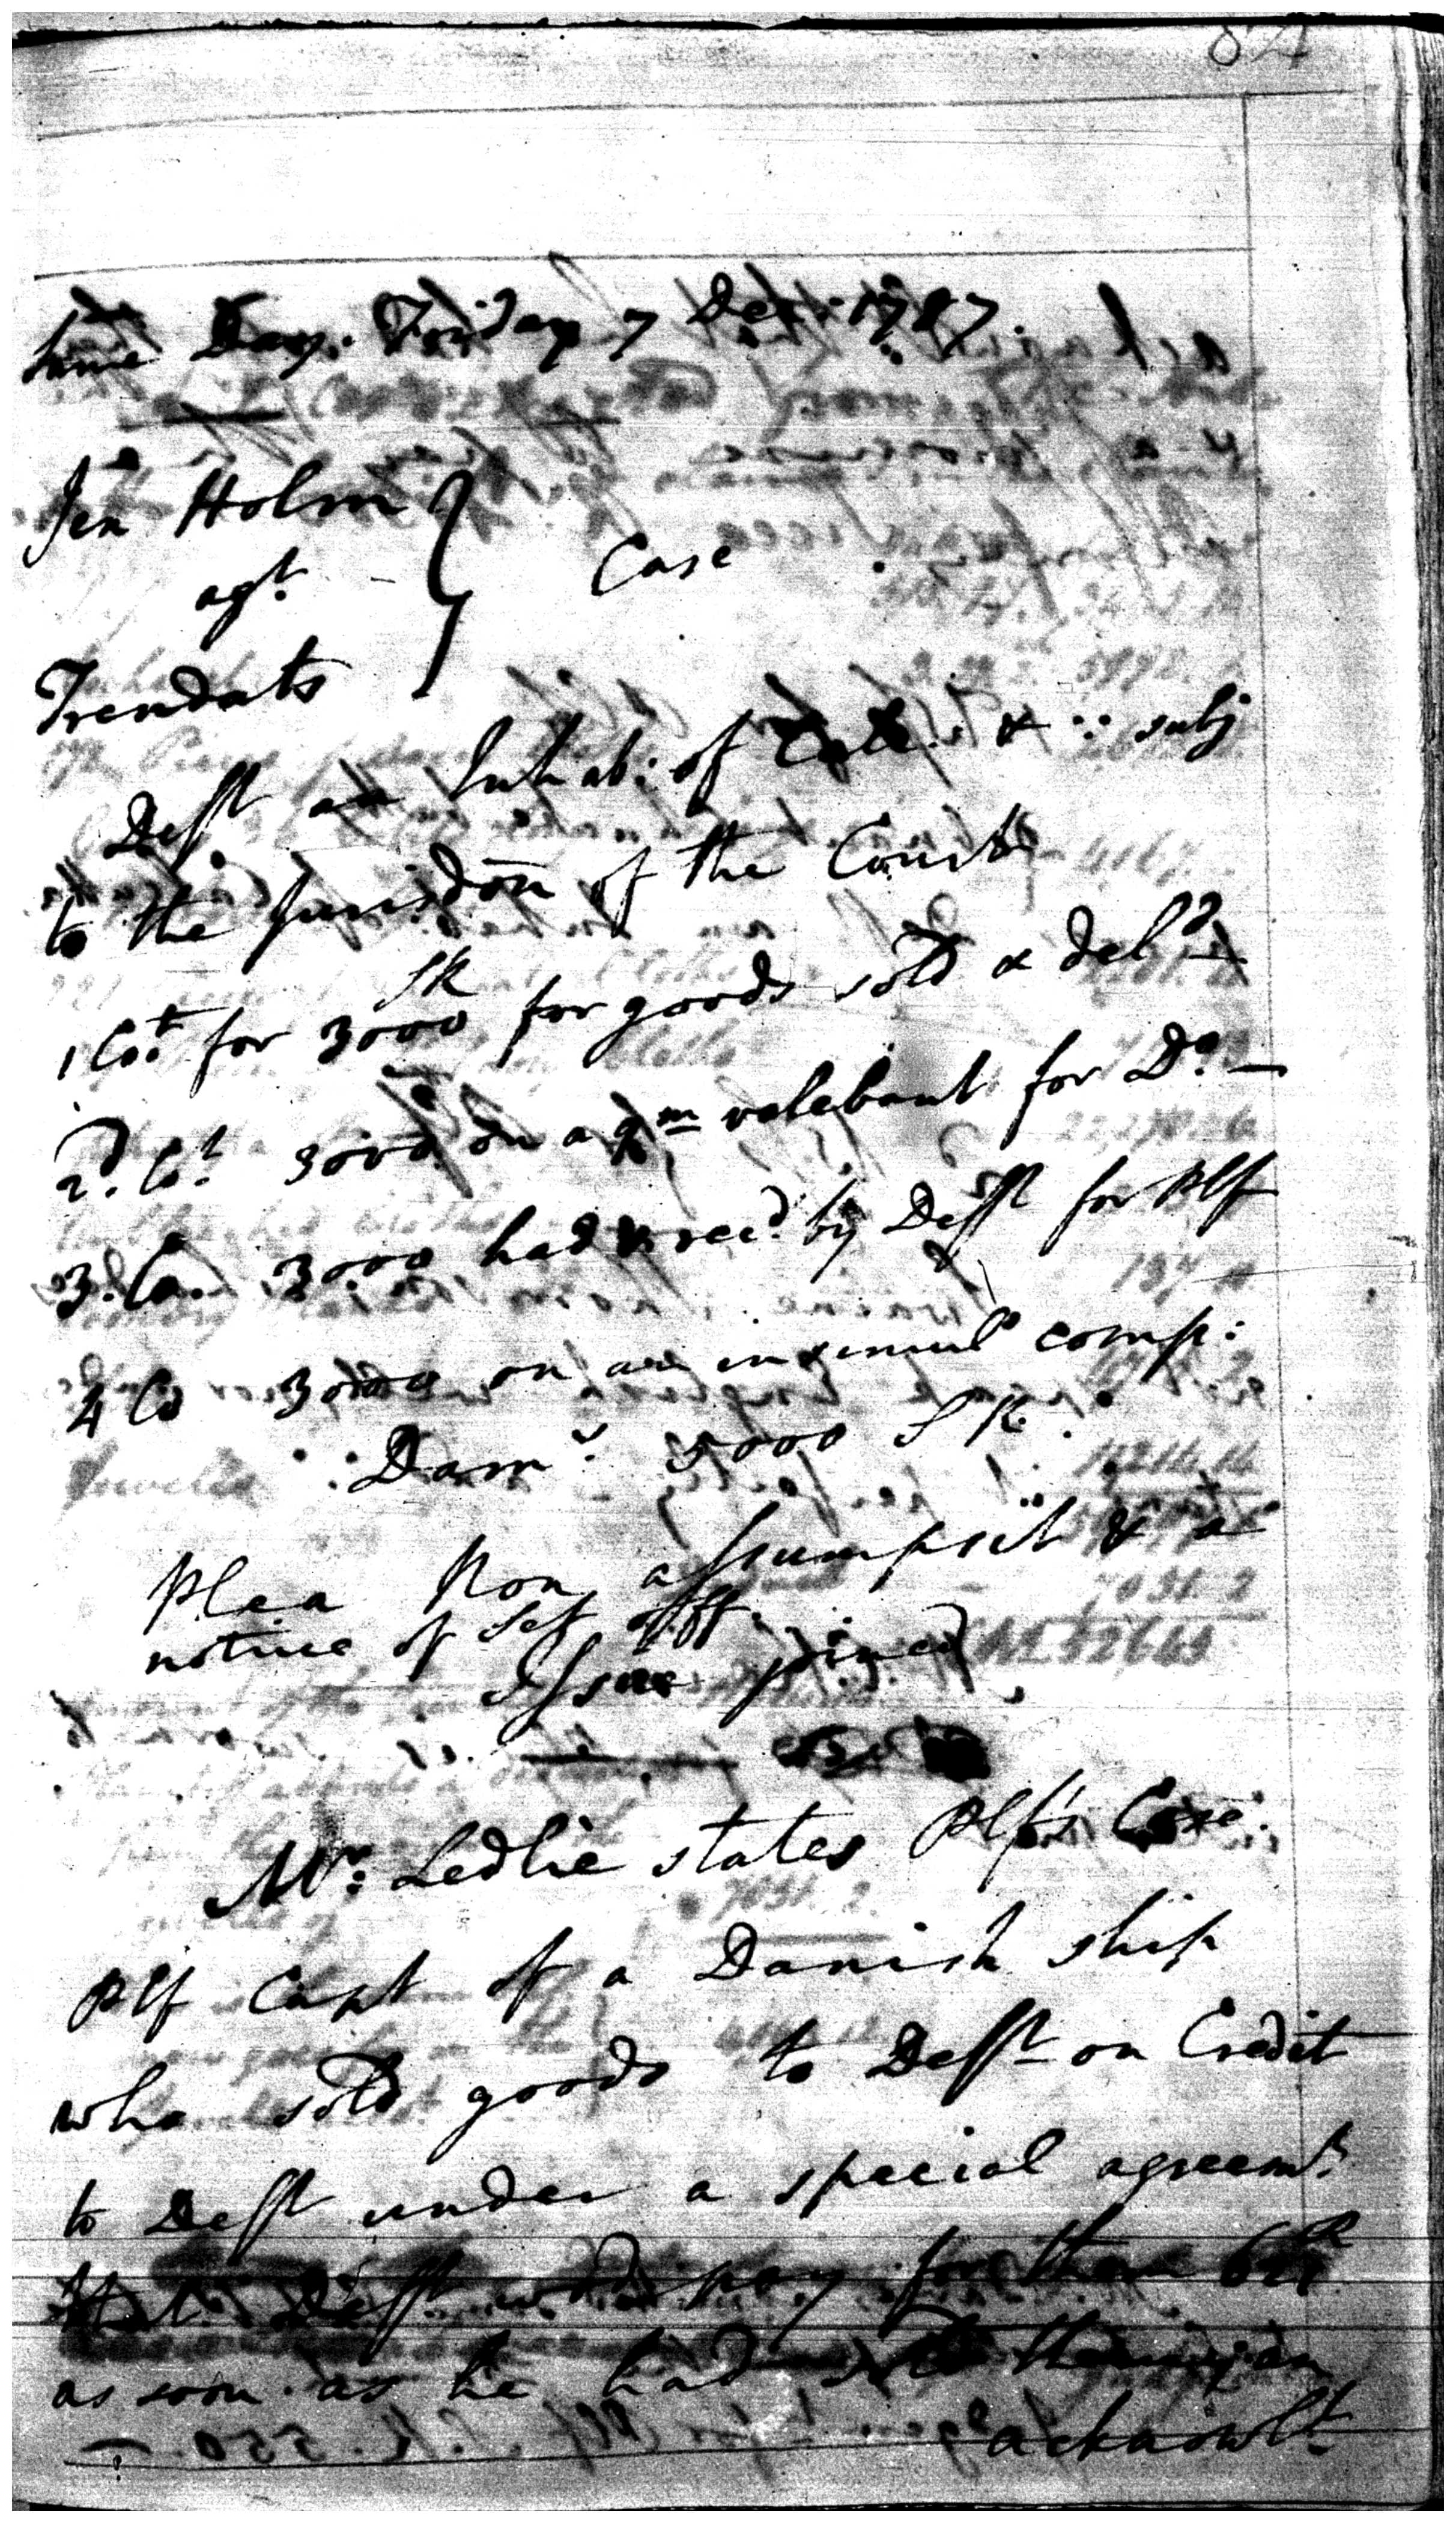 82
Same Day. Friday 7 Dec: 1787.
Jen Holm
agt. Case
Trendats
Deft an Inhab: of Calc: & :: subj
to the Jurisdōn of the Court
1 Cot for 3000 SR for goods sold & deld
2d. Cot 3000 on a qm valebant for Do.
3. Co. 3000 had & recd. by Deft for Plf
4 Co 3000 on an insimul comp:
Dams. 5000 S R.
Plea Non assumpsit & a
notice of set off.
Issue joined
Mr: Ledlie states Plf's Case.
Plf Capt of a Danish ship
who sold goods to Deft on Credit
to Deft under a special agreemt.
that Deft wod pay for them
as soon as he had sold them, an
acknowlt